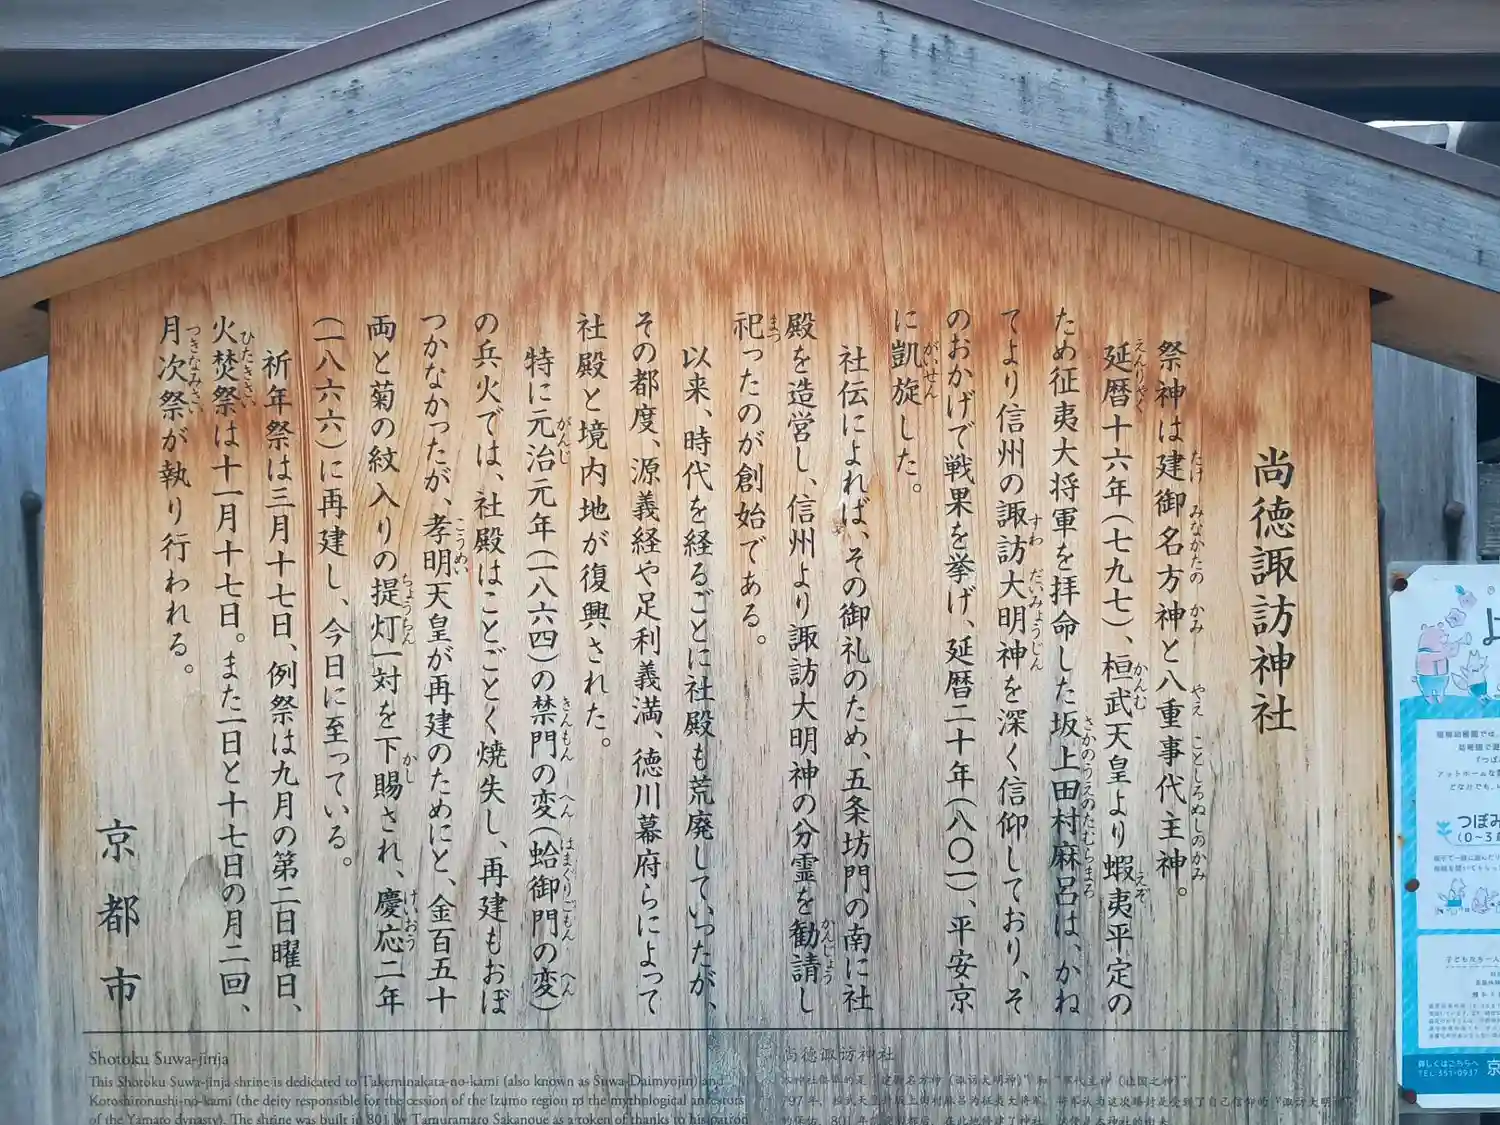 尚徳諏訪神社
祭神は建御名方神と八重事代主神。
延暦十六年(七九七)、桓武天皇より蝦夷平定の
ため征夷大将軍を拝命した坂上田村麻呂は、かね
てより信州の諏訪大明神を深く信仰しており、そ
のおかげで戦果を挙げ、延暦二十年(八〇一)、平安京
に凱旋した。
社伝によれば、その御礼のため、五条坊門の南に社
殿を造営し、信州より諏訪大明神の分霊を勧請し
祀ったのが創始である。
以来、時代を経るごとに社殿も荒廃していったが、
その都度、源義経や足利義満、徳川幕府らによって
社殿と境内地が復興された。
特に元治元年(一八六四)の禁門の変(蛤御門の変)
の兵火では、社殿はことごとく焼失し、再建もおぼ
つかなかったが、孝明天皇が再建のためにと、金百五十
両と菊の紋入りの提灯一対を下賜され、慶応二年
(一八六六)に再建し、今日に至っている。
祈年祭は三月十七日、例祭は九月の第二日曜日、
火焚祭は十一月十七日。また一日と十七日の月二回、
月次祭が執り行われる。
京都市
Shotoku Suwa-jinja
This Shotoku Suwa-jinja shrine is dedicated to Takeminakata-no-kami (also known as Suwa-Daimyojin) and
Kotoshironushi-no-kami (the deity responsible for the cession of the Izumo region to the mythological ancestors
of the Yamato dynasty). The shrine was built in 801 by Tamuramaro Sakanoue as a token of thanks to his
尚德諏访神社
つぼみ
(0～3
TEL.351-0937